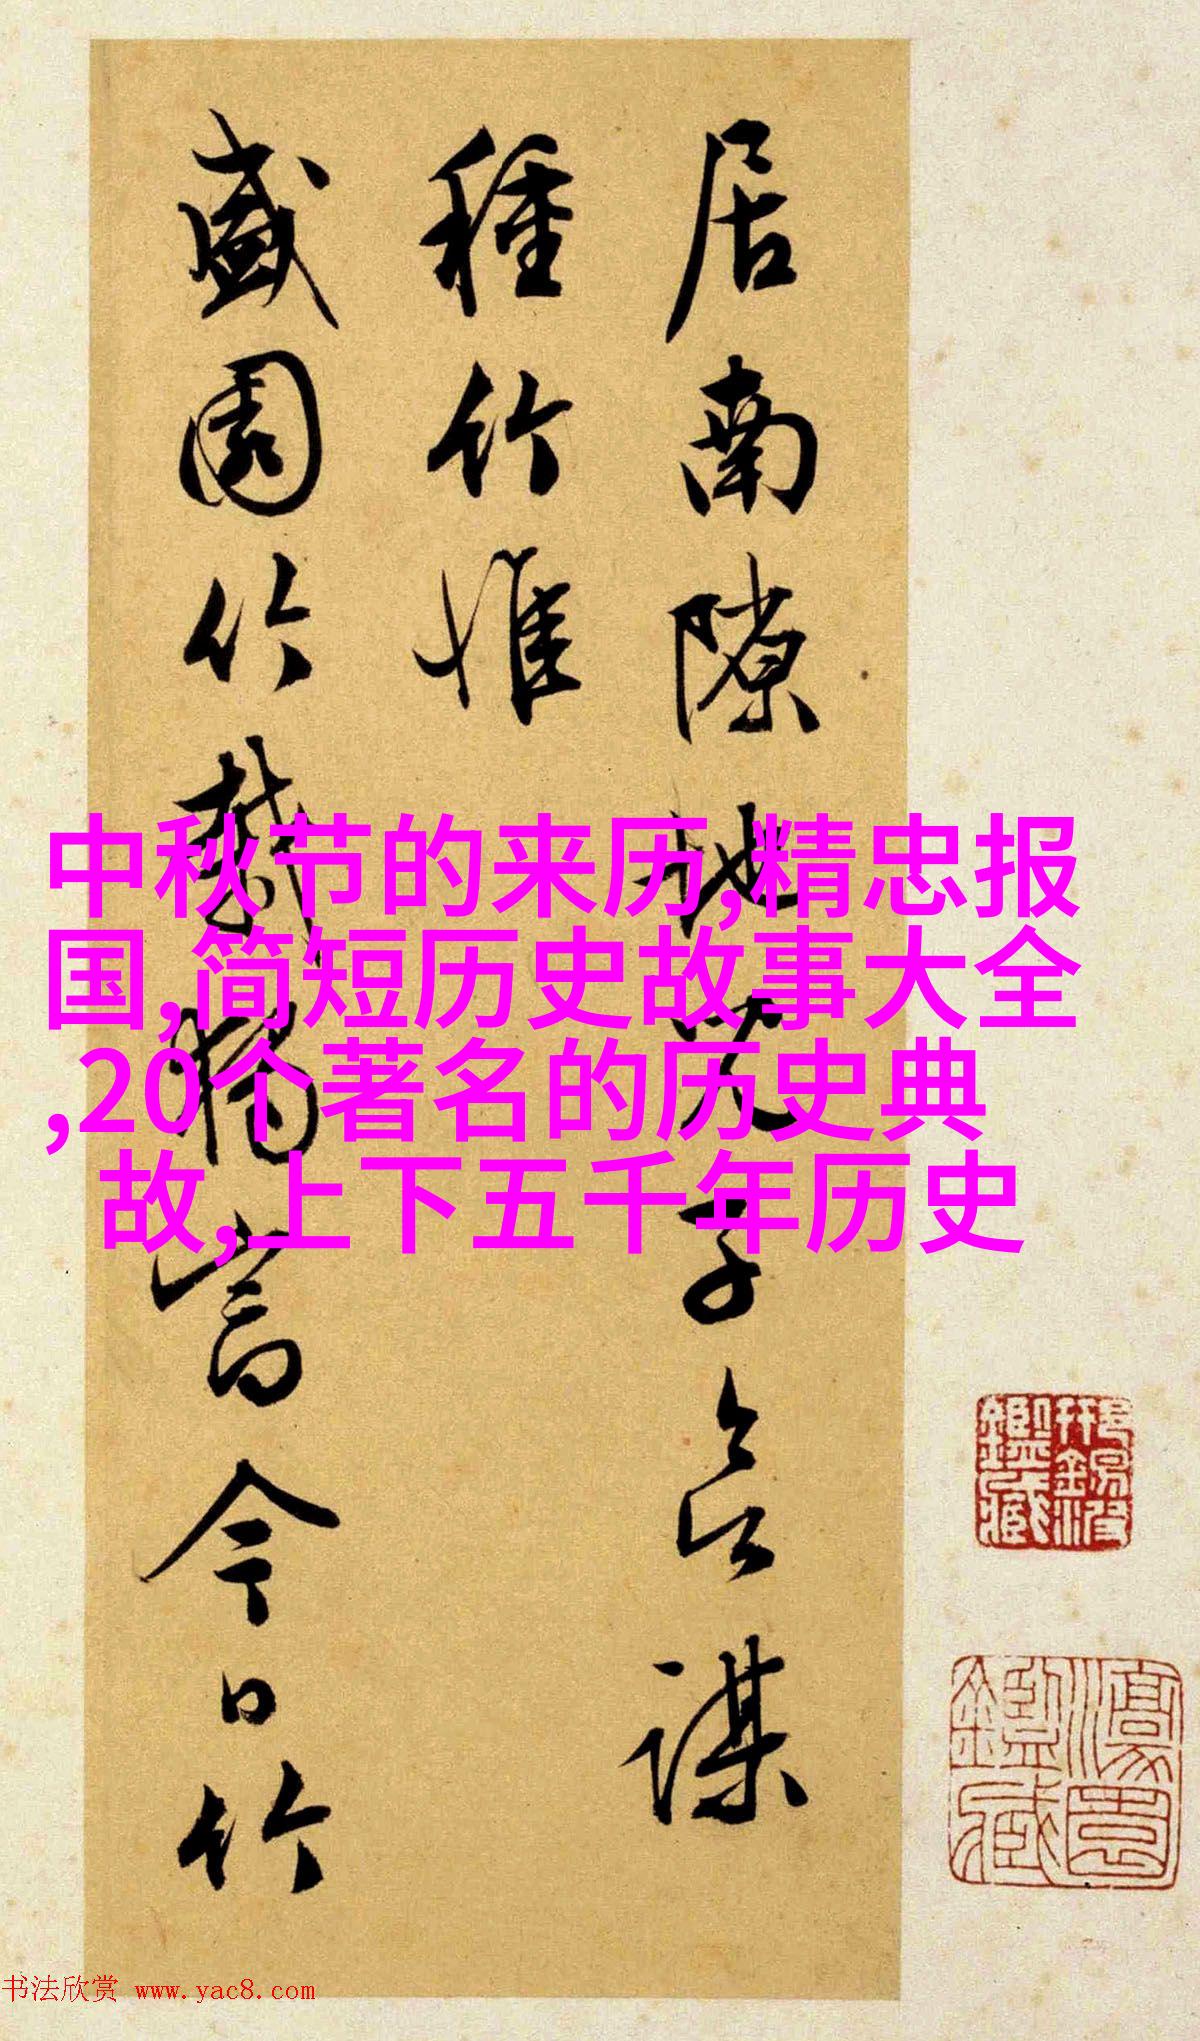 居南隙地兄子彦谋
種竹惟
盛園竹數
言今日竹
中秋节的来历,精忠报
国,简短历史故事大全
,20个著名的历史典
故,上下五千年历史
鑑藏
鑑藏
书法欣赏 www.yac8.com